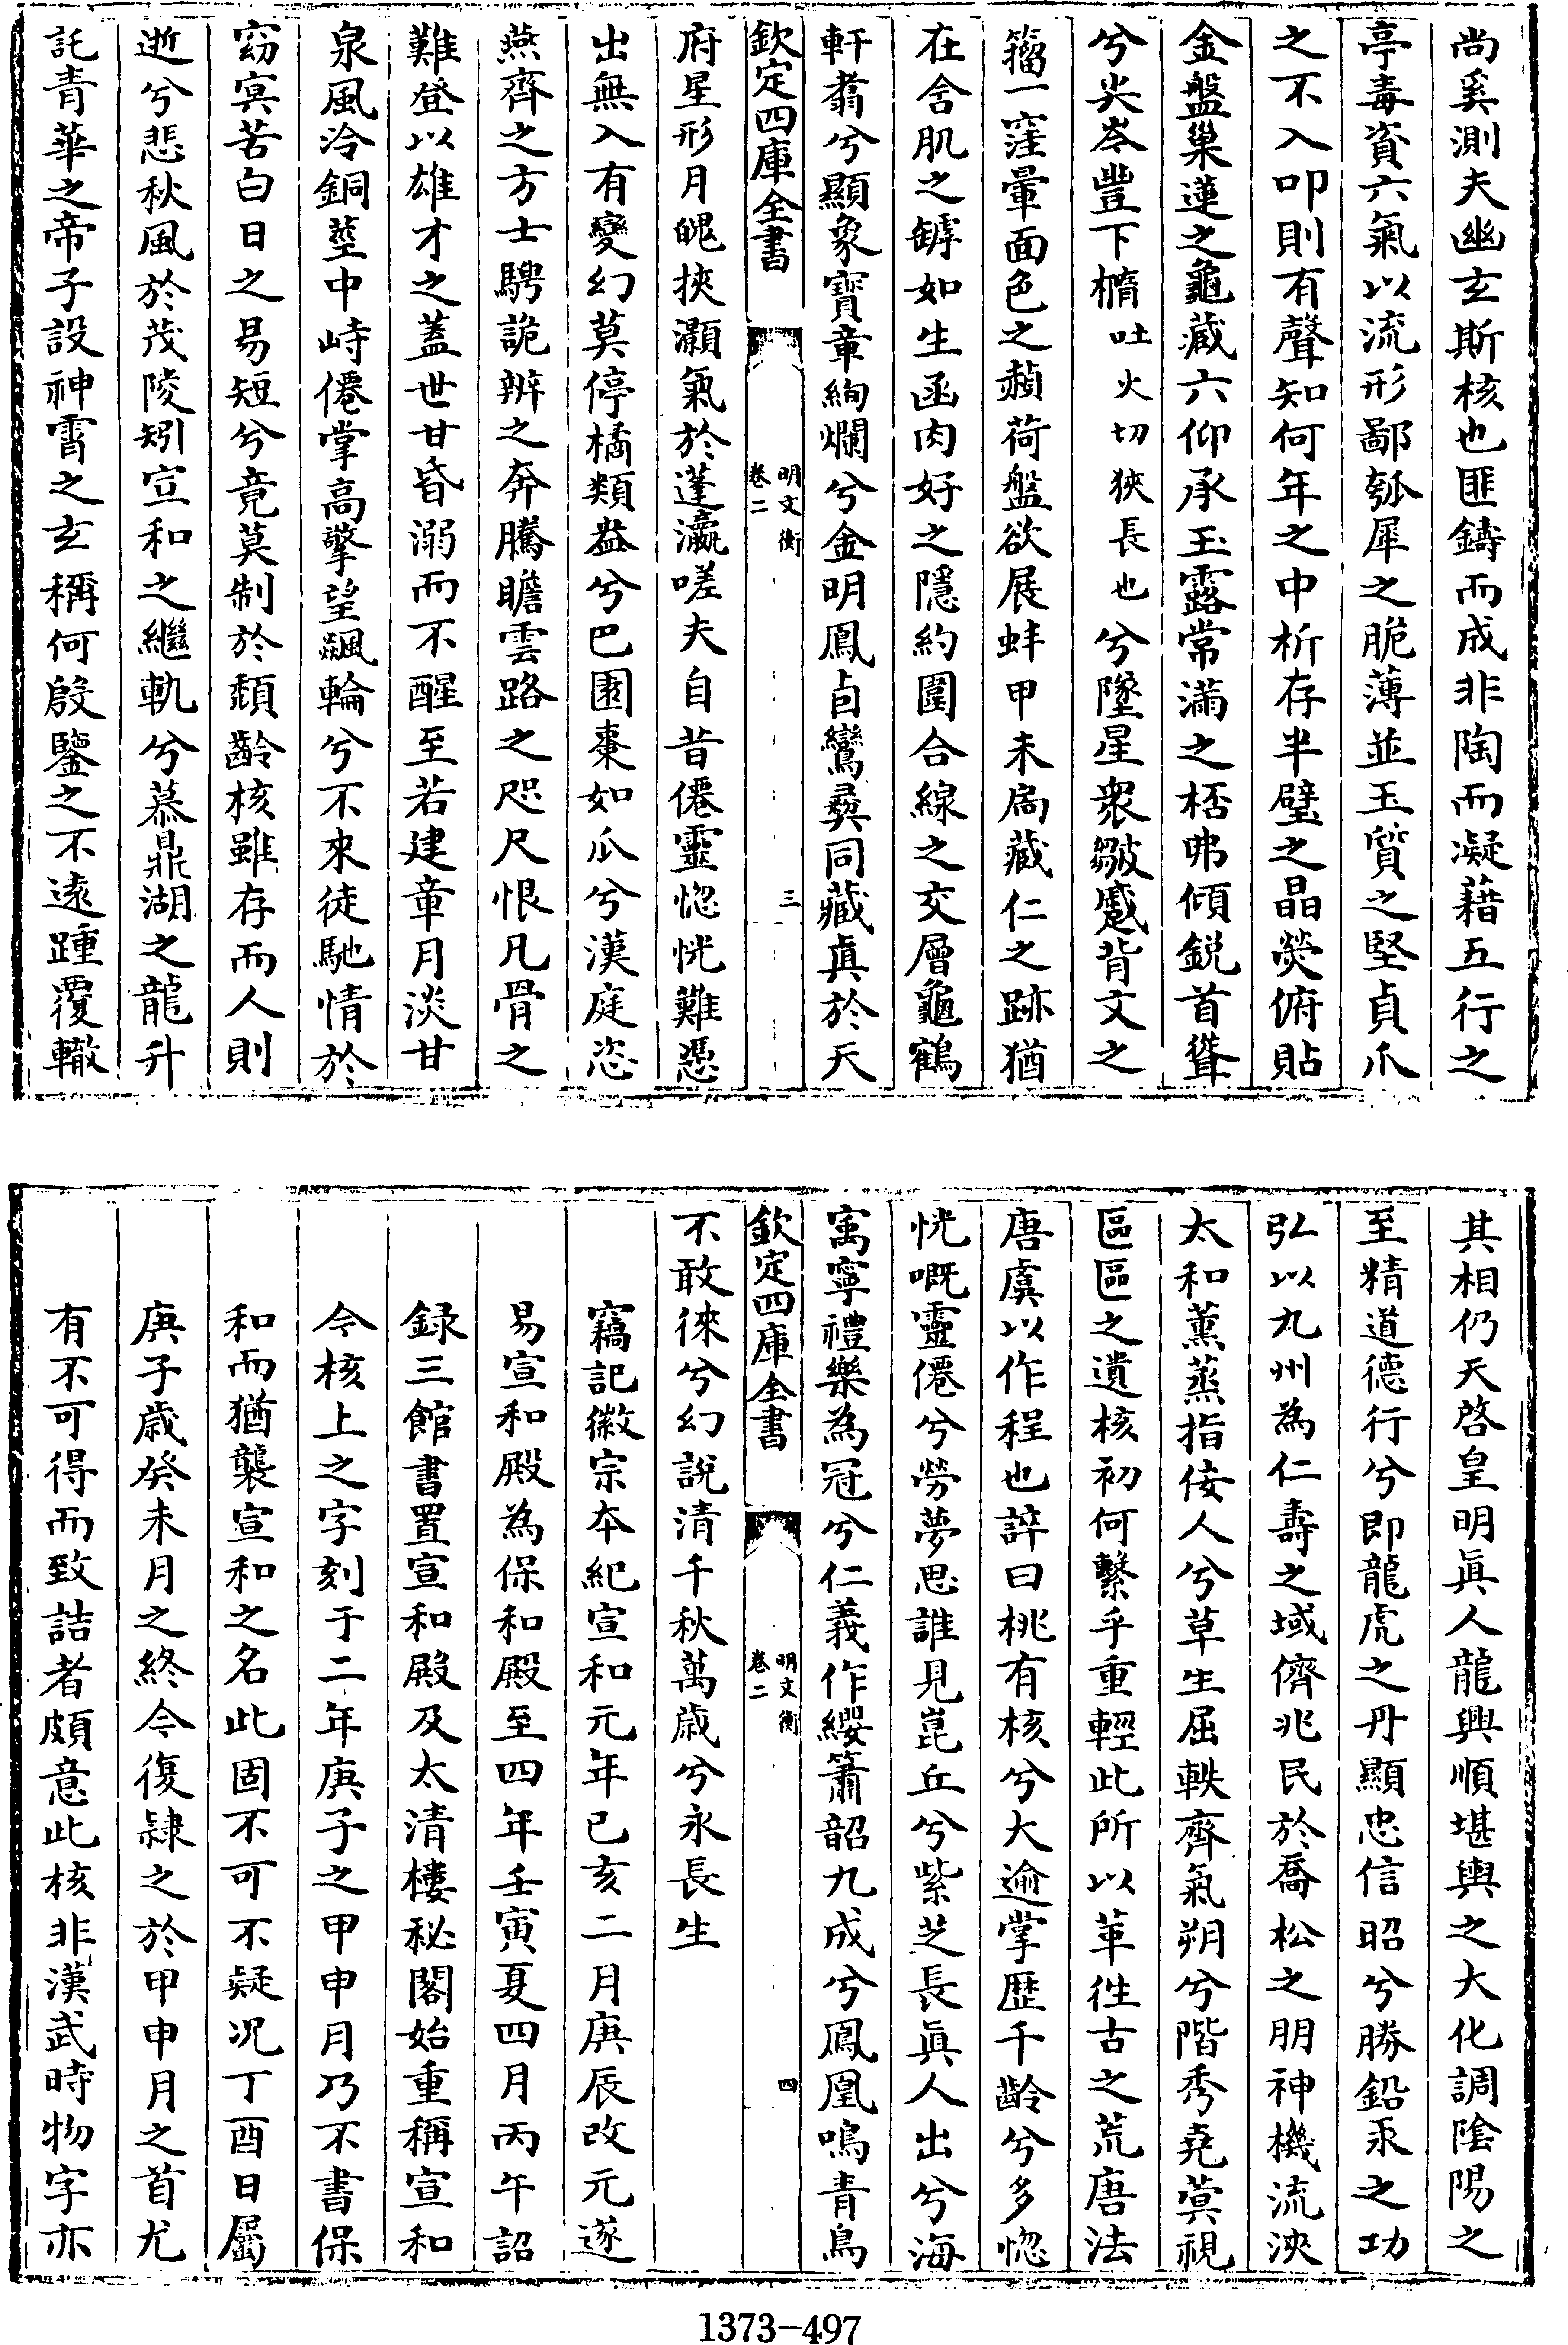 尚奚測夫幽玄斯核也匪鑄而成非陶而凝藉五行之
亭毒資六氣以流形鄙瓠犀之脆薄並玉質之堅貞爪
之不入叩則有聲知何年之中析存半璧之晶熒俯貼
金盤巢蓮之龜藏六仰承玉露常滿之桮弗傾鋭首聳
兮尖岑豐下橢吐火切狹長也兮墜星衆皺蹙背文之
籀一窪暈面色之赬荷盤欲展蚌甲未扃藏仁之跡猶
在含肌之罅如生函肉好之隱約圍合線之交層龜鶴
軒翥兮顯象寶章絢爛兮金明鳳卣鸞彞同藏真於天
欽定四庫全書
明文衡
卷二
三
府星形月魄挾灝氣於蓬瀛嗟夫自昔僊靈惚恍難憑
出無入有變幻莫停橘類盎兮巴園棗如瓜兮漢庭恣
燕齊之方士騁詭辨之奔騰瞻雲路之咫尺恨凡骨之
難登以雄才之蓋世甘昏溺而不醒至若建章月淡甘
泉風泠銅莖中峙僊掌高擎望飇輪兮不來徒馳情於
窈冥苦白日之易短兮竟莫制於頹齡核雖存而人則
逝兮悲秋風於茂陵矧宣和之繼軌兮慕鼎湖之龍升
託青華之帝子設神霄之玄稱何殷鑒之不遠踵覆轍
其相仍天啓皇明真人龍興順堪輿之大化調陰陽之
至精道德行兮即龍虎之丹顯忠信昭兮勝鉛汞之功
弘以九州為仁壽之域儕兆民於喬松之朋神機流浹
太和薰蒸指佞人兮草生屈軼齊氣朔兮階秀堯蓂視
區區之遺核初何繫乎重輕此所以革徃古之荒唐法
唐虞以作程也誶曰桃有核兮大逾掌歷千齡兮多惚
恍嘅靈僊兮勞夢思誰見崑丘兮紫芝長真人出兮海
寓寧禮樂為冠兮仁義作纓簫韶九成兮鳳凰鳴青鳥
欽定四庫全書
明文衡
卷二
四
不敢徠兮幻說清千秋萬歳兮永長生
竊記徽宗本紀宣和元年已亥二月庚辰改元遂
易宣和殿為保和殿至四年壬寅夏四月丙午詔
録三館書置宣和殿及太清樓秘閣始重稱宣和
今核上之字刻于二年庚子之甲申月乃不書保
和而猶襲宣和之名此固不可不疑况丁酉日屬
庚子歳癸未月之終今復隸之於甲申月之首尤
有不可得而致詰者頗意此核非漢武時物字亦
1373-497